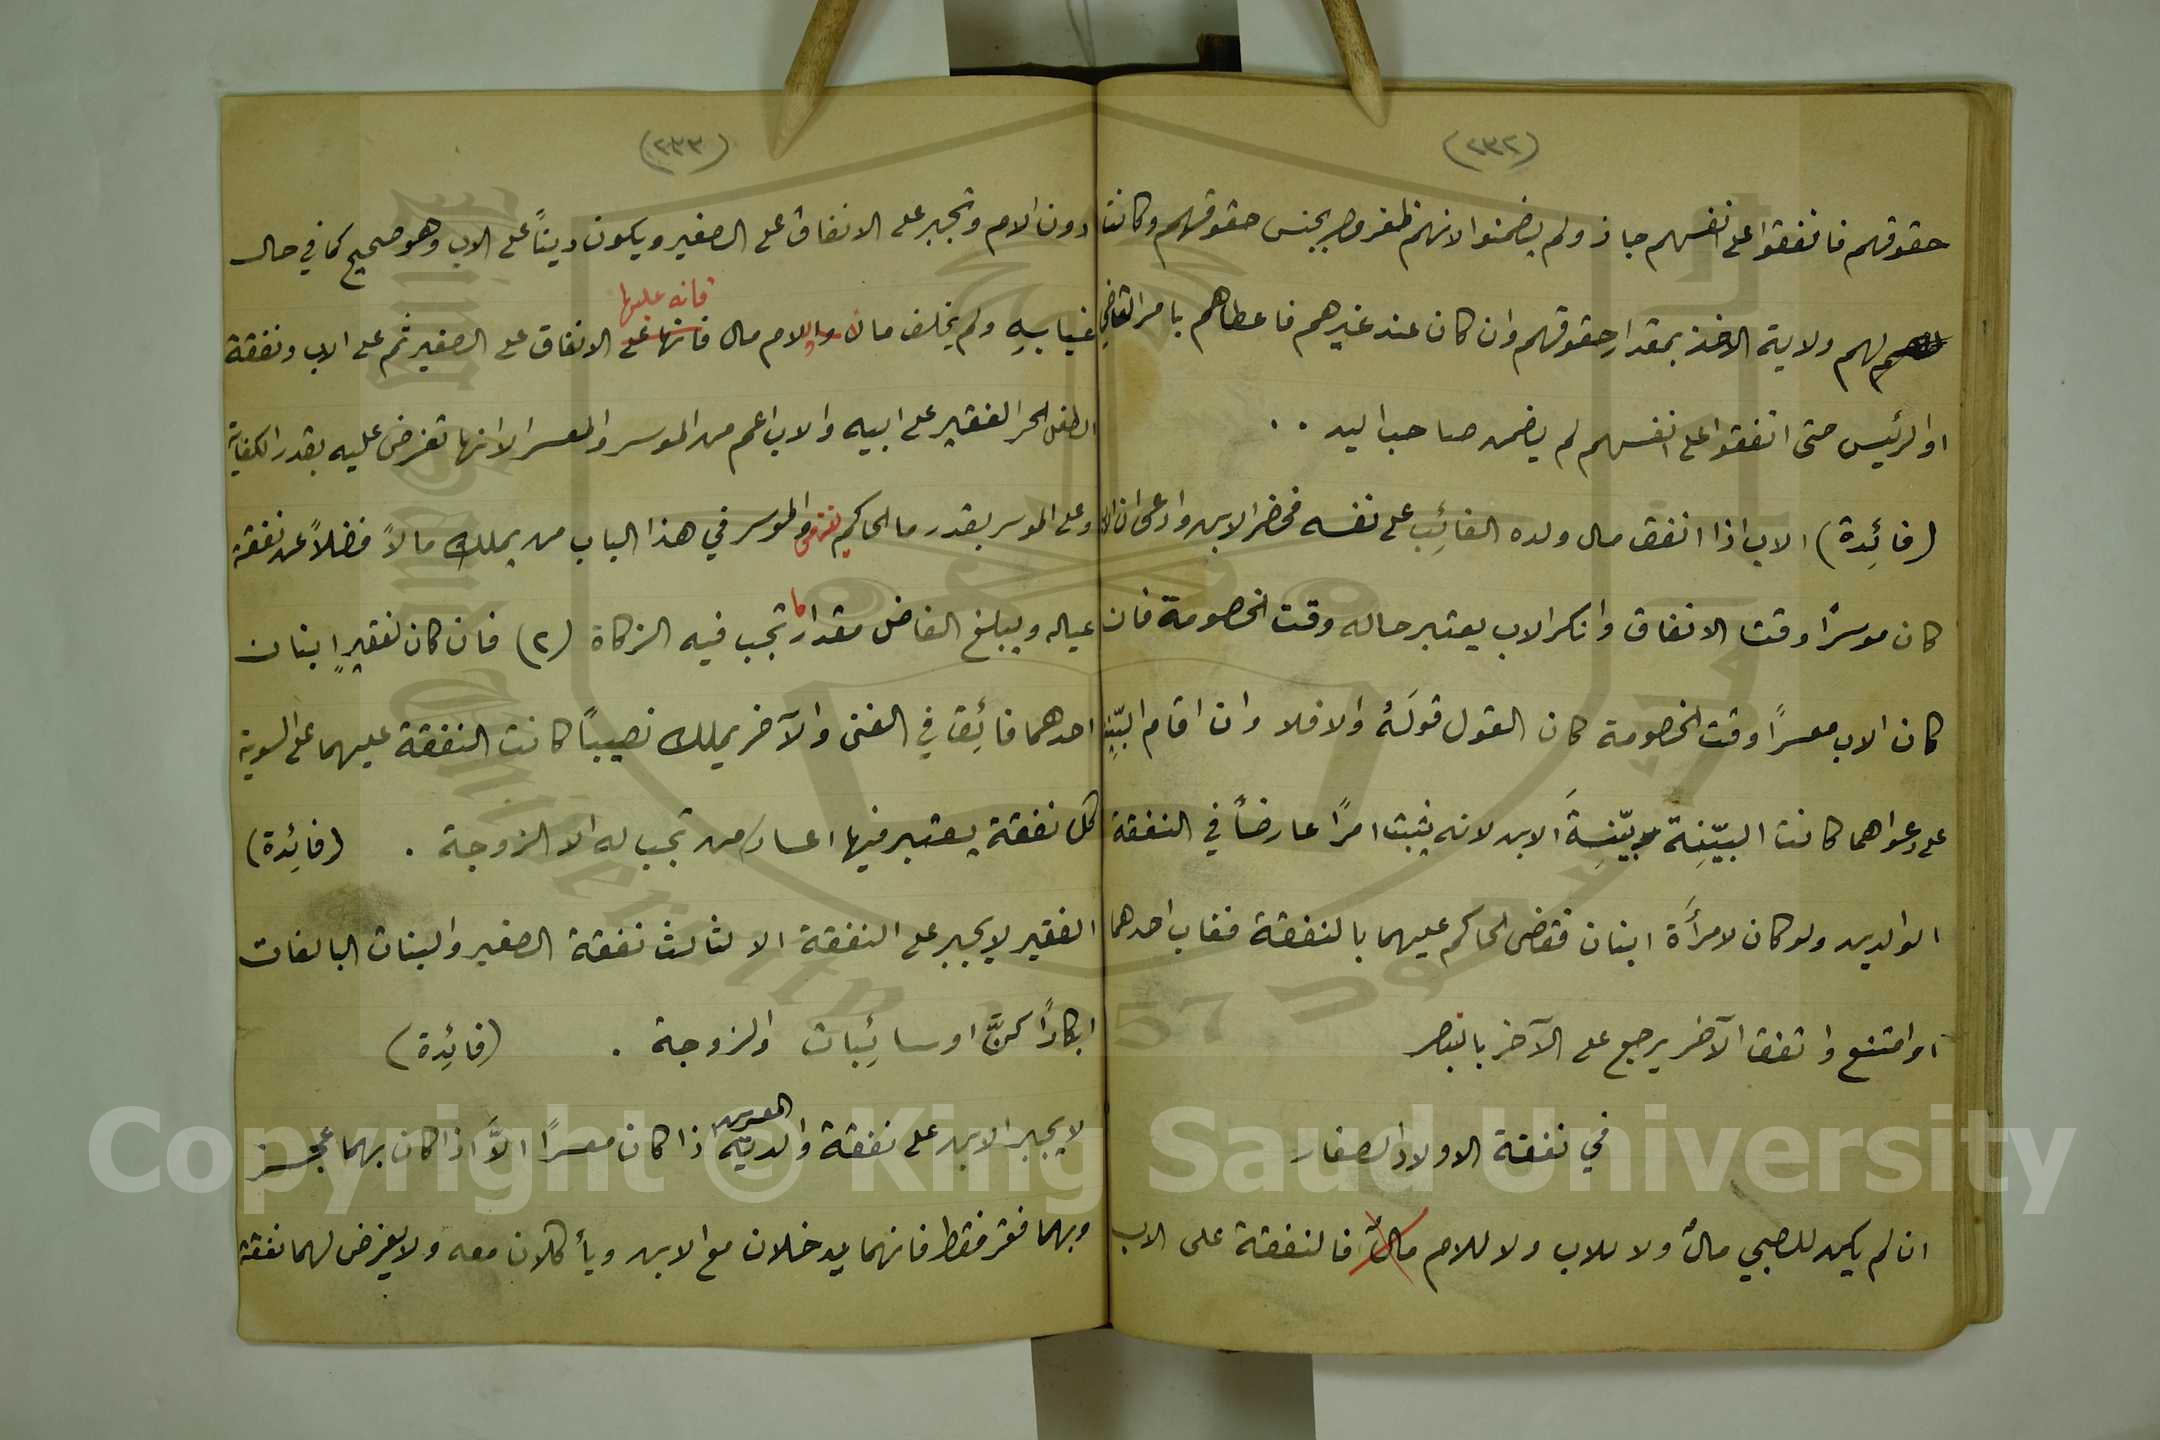 (٢٣٢)
حقوقهم فانفقوا على انفسهم جاز ولم يضمنوا لانهم ظفروا بجنس حقوقهم وكانت
لهم ولاية الاخذ بمقدار حقوقهم وان كان عند غيرهم فاعطاهم بامر القاضي
او الرئيس حتى انفقوا على انفسهم لم يضمن صاحب اليد ..
(فائِدة) الاب اذا انفق مال ولده الغائِب على نفسه فحضر الابن وادعى ان الاب
كان موسرًا وقت الانفاق وانكر الاب يعتبر حاله وقت الخصومة فان
كان الاب معسرًا وقت الخصومة كان القول قولَهُ والا فلا وان اقام البيّنِة
على دعواهما كانت البيّنِة بيّنِةَ الابن لانه يثبت امرًا عارضاً في النفقة
الوالدين ولو كان لامرأَة ابنان فقضى الحاكم عليهما بالنفقة فغاب احدهما
او امتنع وانفق الآخر يرجع على الآخر بالنصر
في نفقة الاولاد الصغار
ان لم يكن للصبي مالٌ ولا للاب ولا للام مالٌ فالنفقة على الاب
(٢٣٣)
دون الام وتجبر على الانفاق على الصغير ويكون ديناً على الاب وهو صحيح كما في حال
فانه عليها
غيابيهِ ولم يخلف مالا وللام مال فانها على الانفاق على الصغير ثم على الاب ونفقة
الطفل الحر الفقير على ابيه والاب اعم من الموسر والمعسر الا انها تفرض عليه بقدر الكفاية
وعلى الموسر بقدر ما الحاكم تفرض والموسر في هذا الباب من يملك مالاً فضلاً عن نفقة
عياله ويبلغ الفاضل مقدارا ما تجب فيه الزكاة (٢) فان كان لفقيرٍ ابنان
احدهما فائِق في الغنى والآخر يملك نصيباً كانت النفقة عليهما على السوية
كل نفقة يعتبر فيها اعسار من تجب له الا الزوجة . (فائِدة)
الفقير لا يجبر على النفقة الا لثالث نفقة الصغير والبنات البالغات
ابكارًا كنَّ او سائِبات والزوجة . (فائِدة)
المعسرين
لا يجبر الابن على نفقة والديه اذا كان معسرًا الاَّ اذا كان بهما عجز
وبهما فقر فقط فانهما يدخلان مع الابن ويأكلان معه ولا يفرض لهما نفقة
Copyright © King Saud University